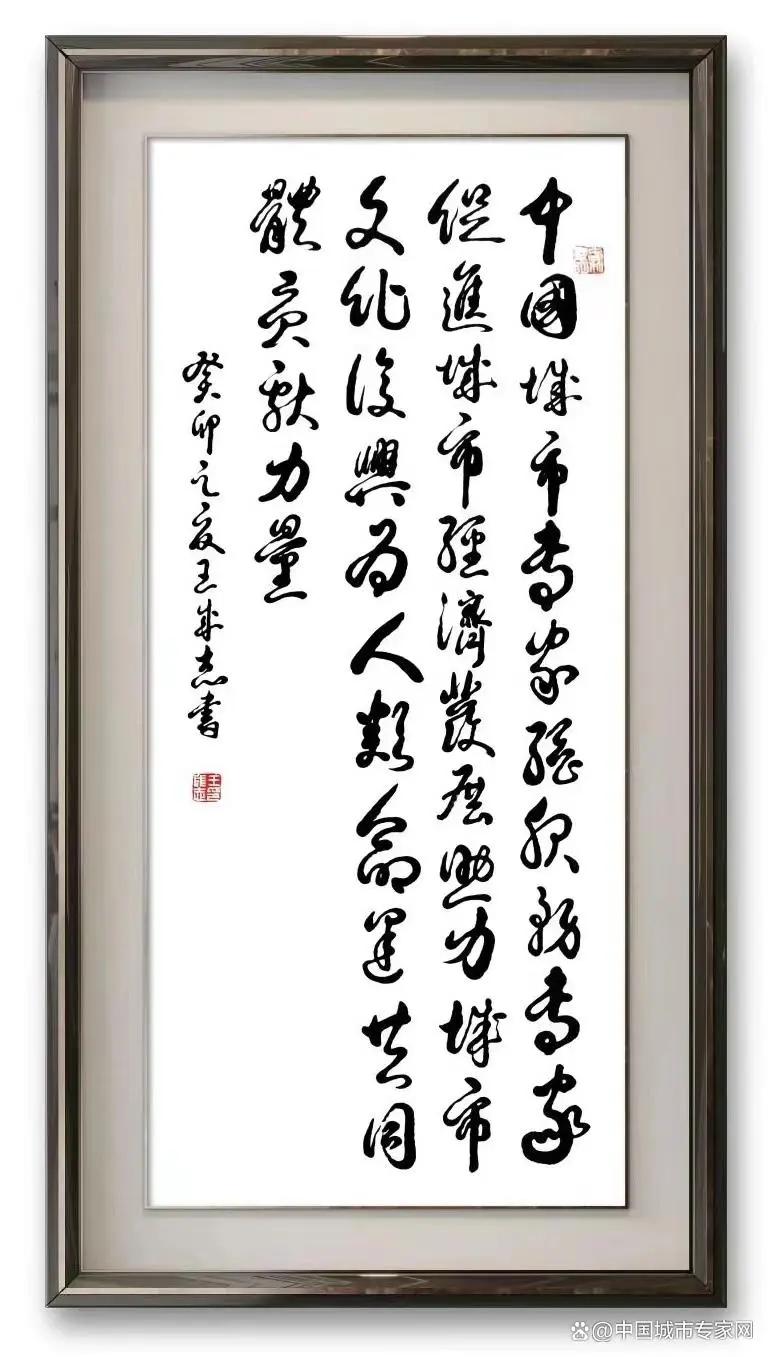 中國城市專家網服務專家
促進城市經濟發展助力城市
文化復興為人類命運共同
體貢獻力量
癸卯之夏王成志書
@中国城市专家网